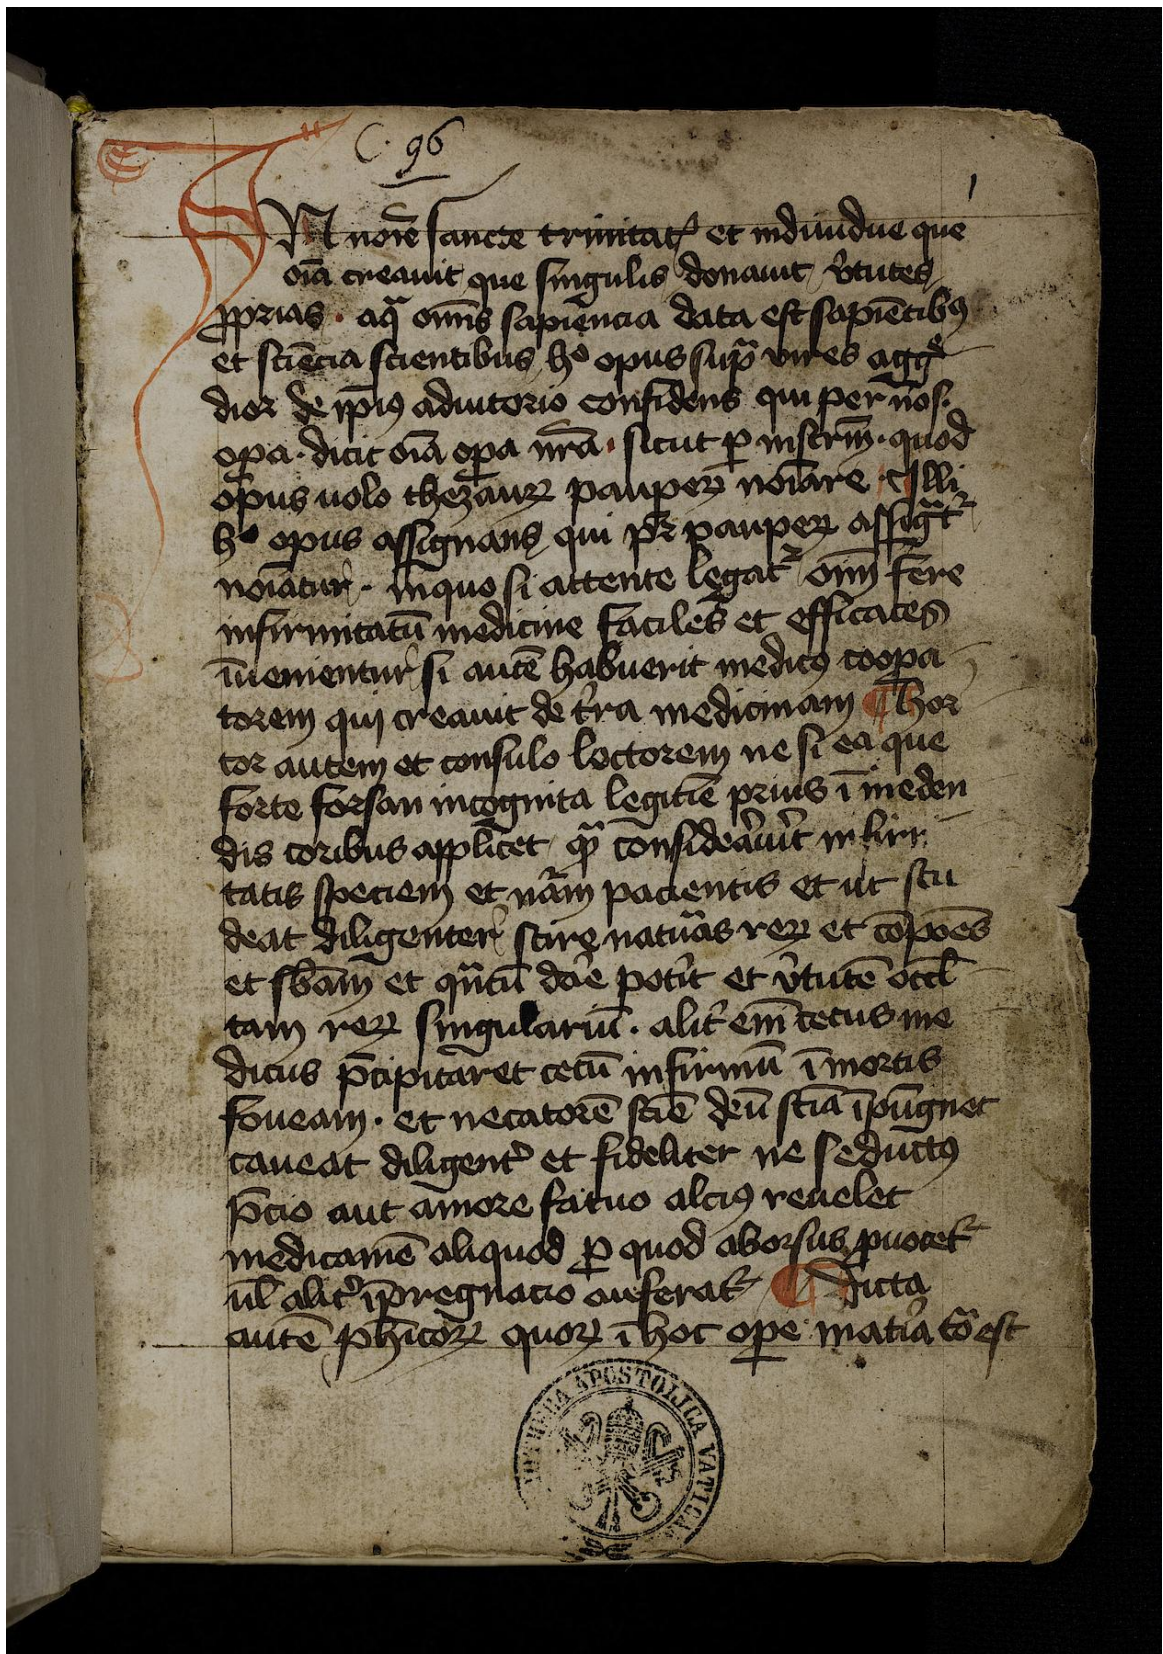 C. 96
1
IN noīe sancte trinitatꝭ et indiuidue que
oīa creauit que singulis donauit v̓tutes
ꝓprias · aqͣ om̄is sapiencia data est sapiētibꝫ
et sciēcia scientibus hͦ opus supͣ vires aggͤ
dior de ip̄iꝰ adiutorio confidens qui per nos
opa · dicit oīa oꝑa nr̄a · sicut ꝑ instrm̄ · quod
opus uolo thezaurꝝ pauperꝝ noīare ¶ Illi
hͦ opus assignans qui pr̄ pauperꝝ assigͣtᷣ
noīatur · inquo si attente legatᷣ oīm fere
infirmitatū medicine faciles et efficaces
īuenientur si autē habuerit medicꝰ coopa
torem qui creauit de t̓ra medicinam ¶ hor
tor autem et consulo lectorem ne si ea que
forte forsan incognita legitīe prius ī meden
dis coribus applicet qͣ̄ consideāu̓it infirī
tatis speciem et nāͣm pacientis et ut stu
deat diligenter scire natuͣas rerꝝ et cōpōes
et sb̄am et qͣntū do̓e pot̓it et v̓tutē occl̄
tam rerꝝ singulariū · alit̓ em̄ cecus me
dicus p̄cipitaret cecū infirmū ī mortis
foueam · et necatorē sciē deū sciā īpūgnet
caueat diligent̓ et fideliter ne seductꝰ
p̄cio aut amore fatuo alciꝰ reuelet
medicamē aliquod ꝑ quod aborsus ꝓuocetᷣ
ul̄ alit̓ īpregnacio auferatᷣ ¶ Dicta
autē ph̄icorꝝ quorꝝ ī hoc oꝑe mat̓ia est
APOSTOLICA VATICA